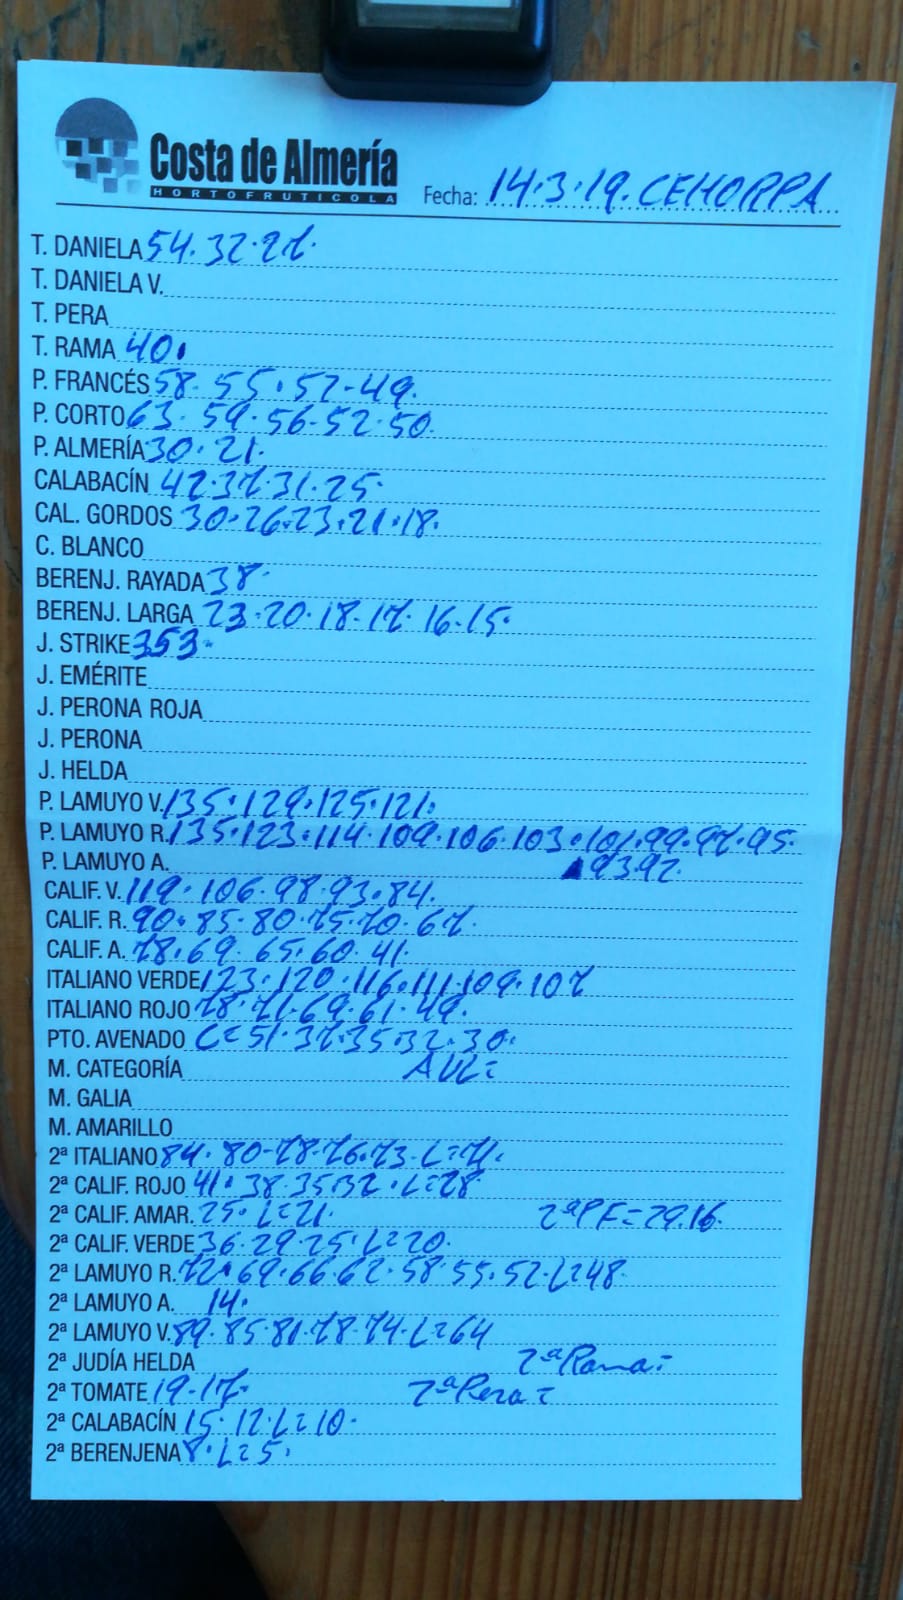 Costa de Almería
HORTOFRUTICOLA
Fecha: 14.3.19. CEHORPA
T. DANIELA 54. 32. 27.
T. DANIELA V.
T. PERA
T. RAMA 40.
P. FRANCÉS 58. 55. 52-49.
P. CORTO 63. 59. 56-52. 50.
P. ALMERÍA 30. 21.
CALABACÍN 42.37.31.25.
CAL. GORDOS 30.26.23.21.18.
C. BLANCO
BERENJ. RAYADA 38.
BERENJ. LARGA 23.20.18.17.16.15.
J. STRIKE 353.
J. EMÉRITE
J. PERONA ROJA
J. PERONA
J. HELDA
P. LAMUYO V. 135.129.125.121.
P. LAMUYO R. 135.123.114.109.106.103.101.99.97.95.
P. LAMUYO A. 93.92.
CALIF. V. 119. 106. 98. 93. 84.
CALIF. R. 90. 85. 80. 75. 70. 67.
CALIF. A. 78. 69. 65. 60. 41.
ITALIANO VERDE 123. 120. 116. 111. 109. 107
ITALIANO ROJO 78. 71. 69. 61. 49.
PTO. AVENADO C= 51. 37. 35. 32. 30.
M. CATEGORÍA AVL=
M. GALIA
M. AMARILLO
2ª ITALIANO 84. 80-78-76.73-L=71.
2ª CALIF. ROJO 41. 38. 35. 32. L=28
2ª CALIF. AMAR. 25. L=21. 2ªPF=29.16.
2ª CALIF. VERDE 36.29.25.L=20.
2ª LAMUYO R. 72.69.66.62.58.55.52.L=48.
2ª LAMUYO A. 14.
2ª LAMUYO V. 89.85.81.78-74.L=64
2ª JUDÍA HELDA 2ªRama=
2ª TOMATE 19-17. 2ªPera=
2ª CALABACÍN 15. 12.L=10.
2ª BERENJENA 8. L=5.